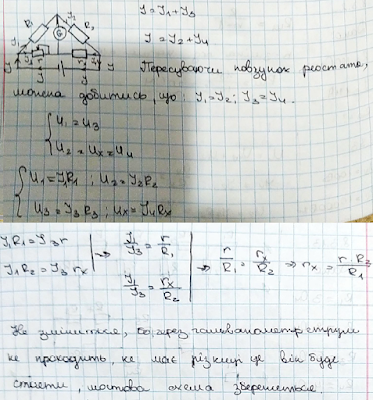 R₁ G R₂
J = J₁ + J₃
J = J₂ + J₄
Пересуваючи повзунок реостата,
можна добитись, що: J₁ = J₂; J₃ = J₄.
U₁ = U₃
U₂ = Uх = U₄
U₁ = J₁R₁; U₂ = J₃R₂
U₃ = J₃R₃; Uх = J₄Rх
J₁R₁ = J₃r
J₁R₂ = J₃rх
⇒ J₁/J₃ = r/R₁
J₁/J₃ = rх/R₂
⇒ r/R₁ = rх/R₂ ⇒ rх = r·R₂/R₁
Не зміниться, бо через гальванометр струм
не проходить, не має різниці де він буде
стояти, мостова схема збережеться.